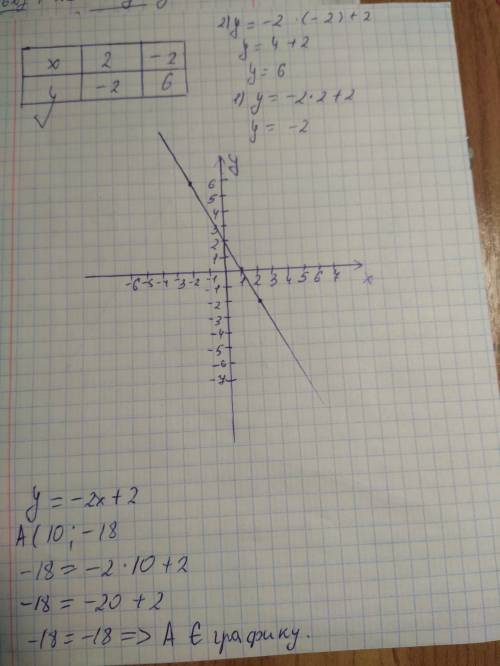 2) y = -2 · (-2) + 2
y = 4 + 2
y = 6
1) y = -2 · 2 + 2
y = -2
x 2 -2
y -2 6
y
6
5
4
3
2
1
-6 -5 -4 -3 -2 -1 1 2 3 4 5 6 7 x
-1
-2
-3
-4
-5
-6
-7
y = -2x + 2
A (10 ; -18
-18 = -2 · 10 + 2
-18 = -20 + 2
-18 = -18 => A ∈ графику.